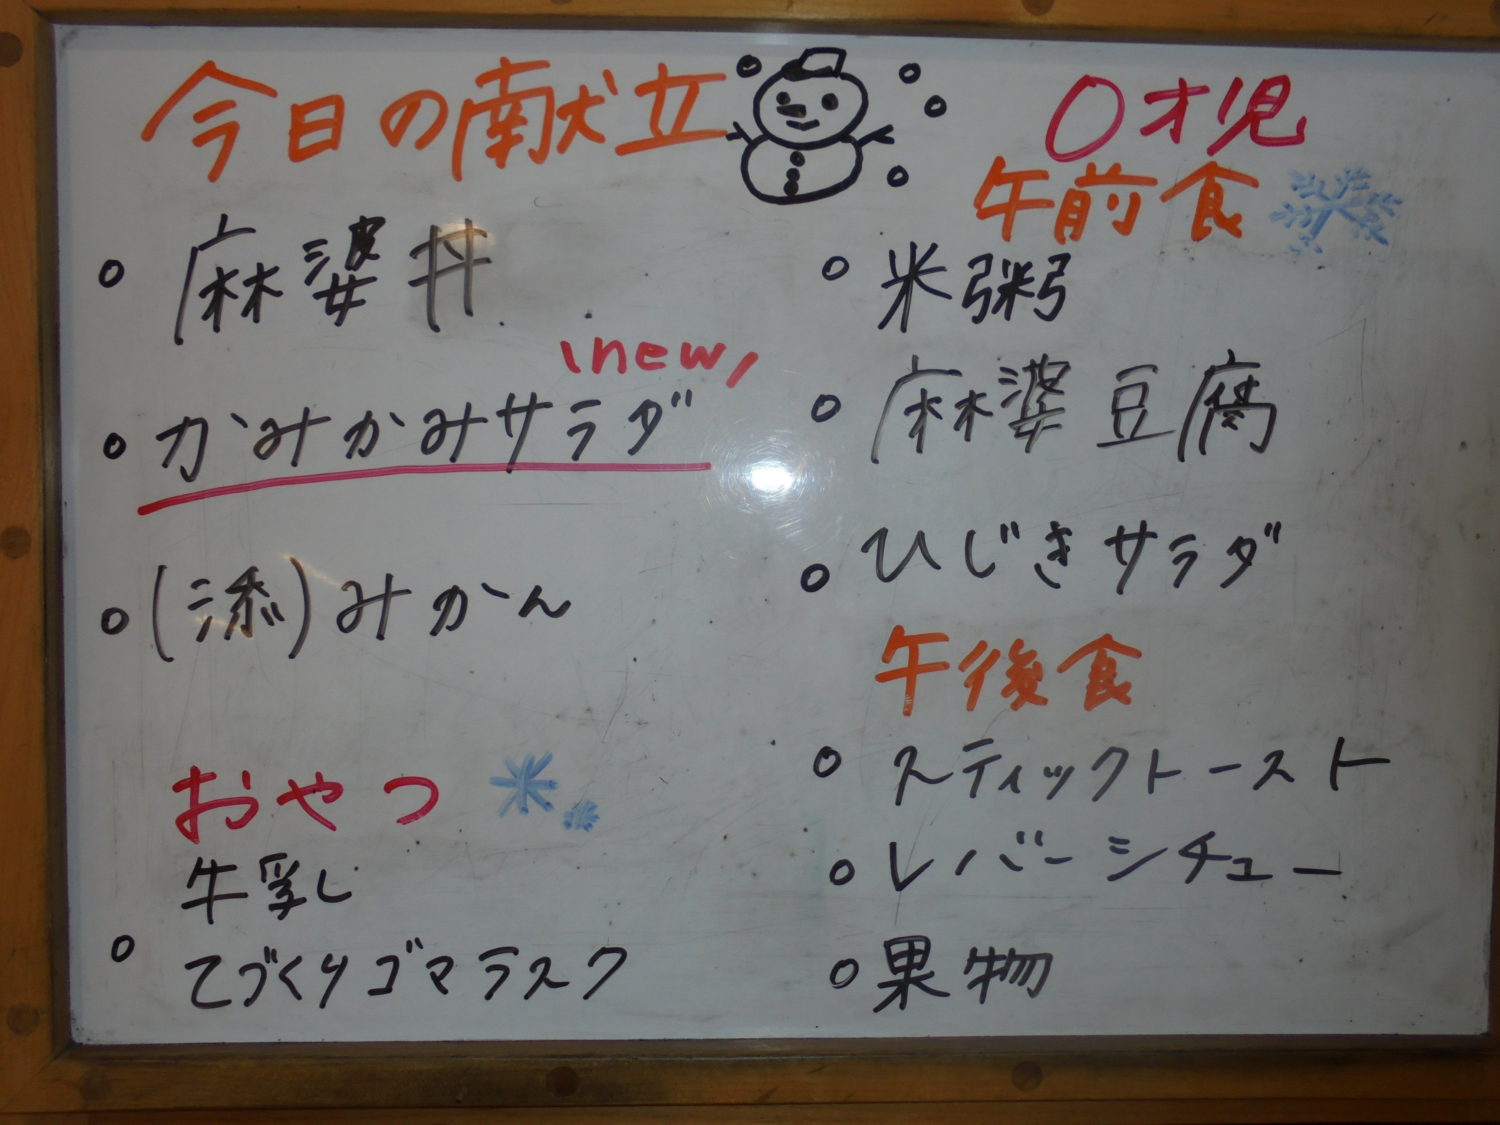 今日の献立
麻婆丼
new
かみかみサラダ
(添)みかん
おやつ
牛乳
てづくりゴマラスク
0才児
午前食
米粥
麻婆豆腐
ひじきサラダ
午後食
スティックトースト
レバーシチュー
果物